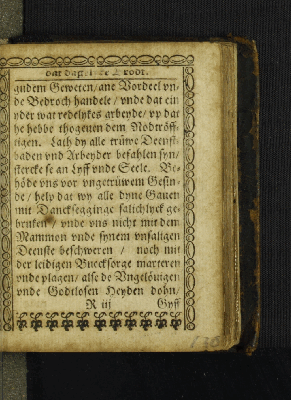 dat dagelike Brodt.
gudem Geweten/ ane Vordeel vn-
de Bedroch handele / vnde dat ein
yder wat redelykes arbeyde/ vp dat
he hebbe thogeuen dem Nodtröff-
tigen. Lath dy alle trüwe Deenst-
baden vnd Arbeyder befahlen syn/
stercke se an Lyff vnde Seele. Be-
höde vns vor vngetrüwem Gesin-
de / help dat wy alle dyne Gauen
mit Dancksegginge salichlyck ge-
bruken / vnde vns nicht mit dem
Mammon vnde synem vnsaligen
Deenste beschweren / noch mit
der leidigen Bucksorge marteren
vnde plagen/ alse de Vngelöuigen
vnde Godtlosen Heyden dohn/
R iij Gyff